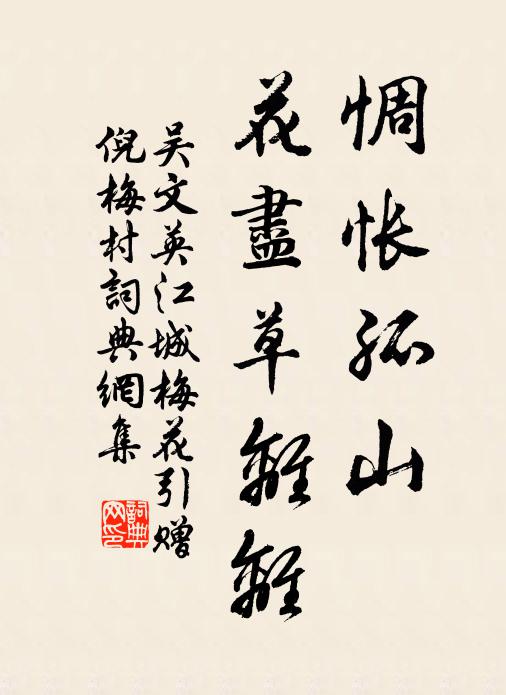 惆悵孤山
花盡草離離
吴文英江城梅花引贈
倪梅村詞典網集
詞典
网印